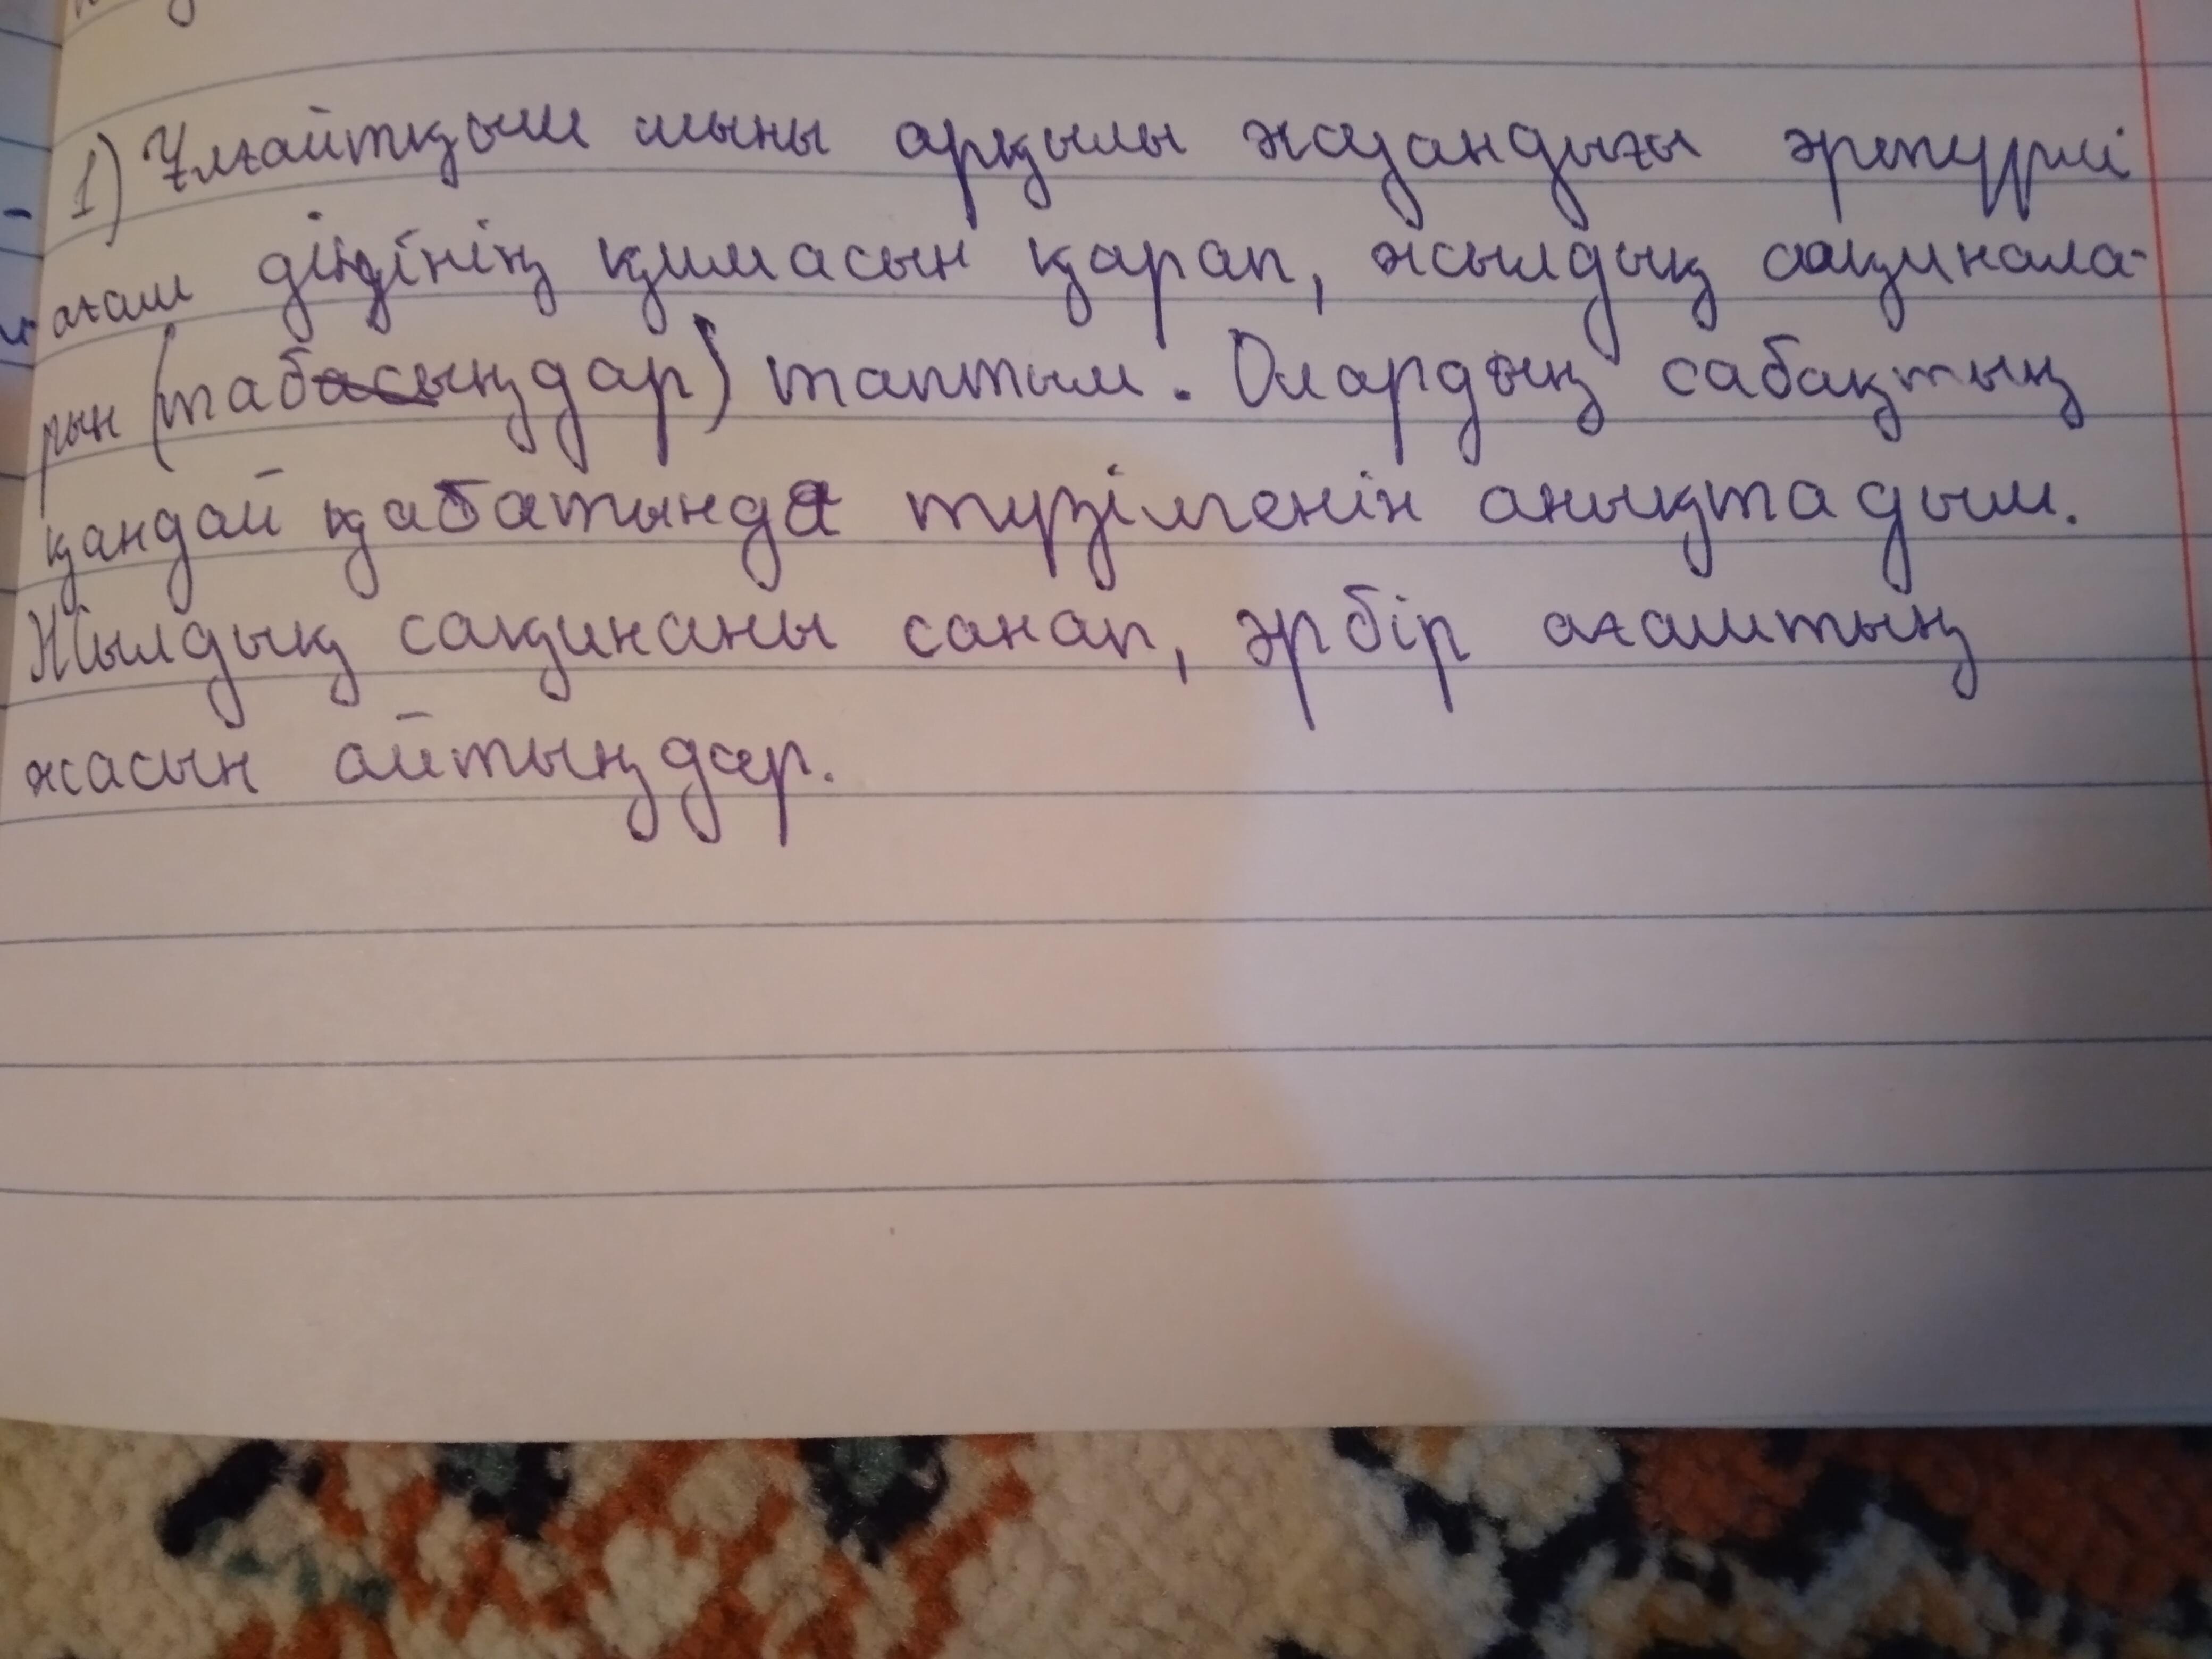 1) Ұлғайтқыш шыны арқылы жуандығы әртүрлі
ағаш діңдінің қимасын қарап, жылдық сақинала-
рын (табасыңдар) таптым. Олардың сабақтың
қандай қабатында түзілгенін анықтадым.
Жылдық сақинаны санап, әрбір ағаштың
жасын айтыңдар.